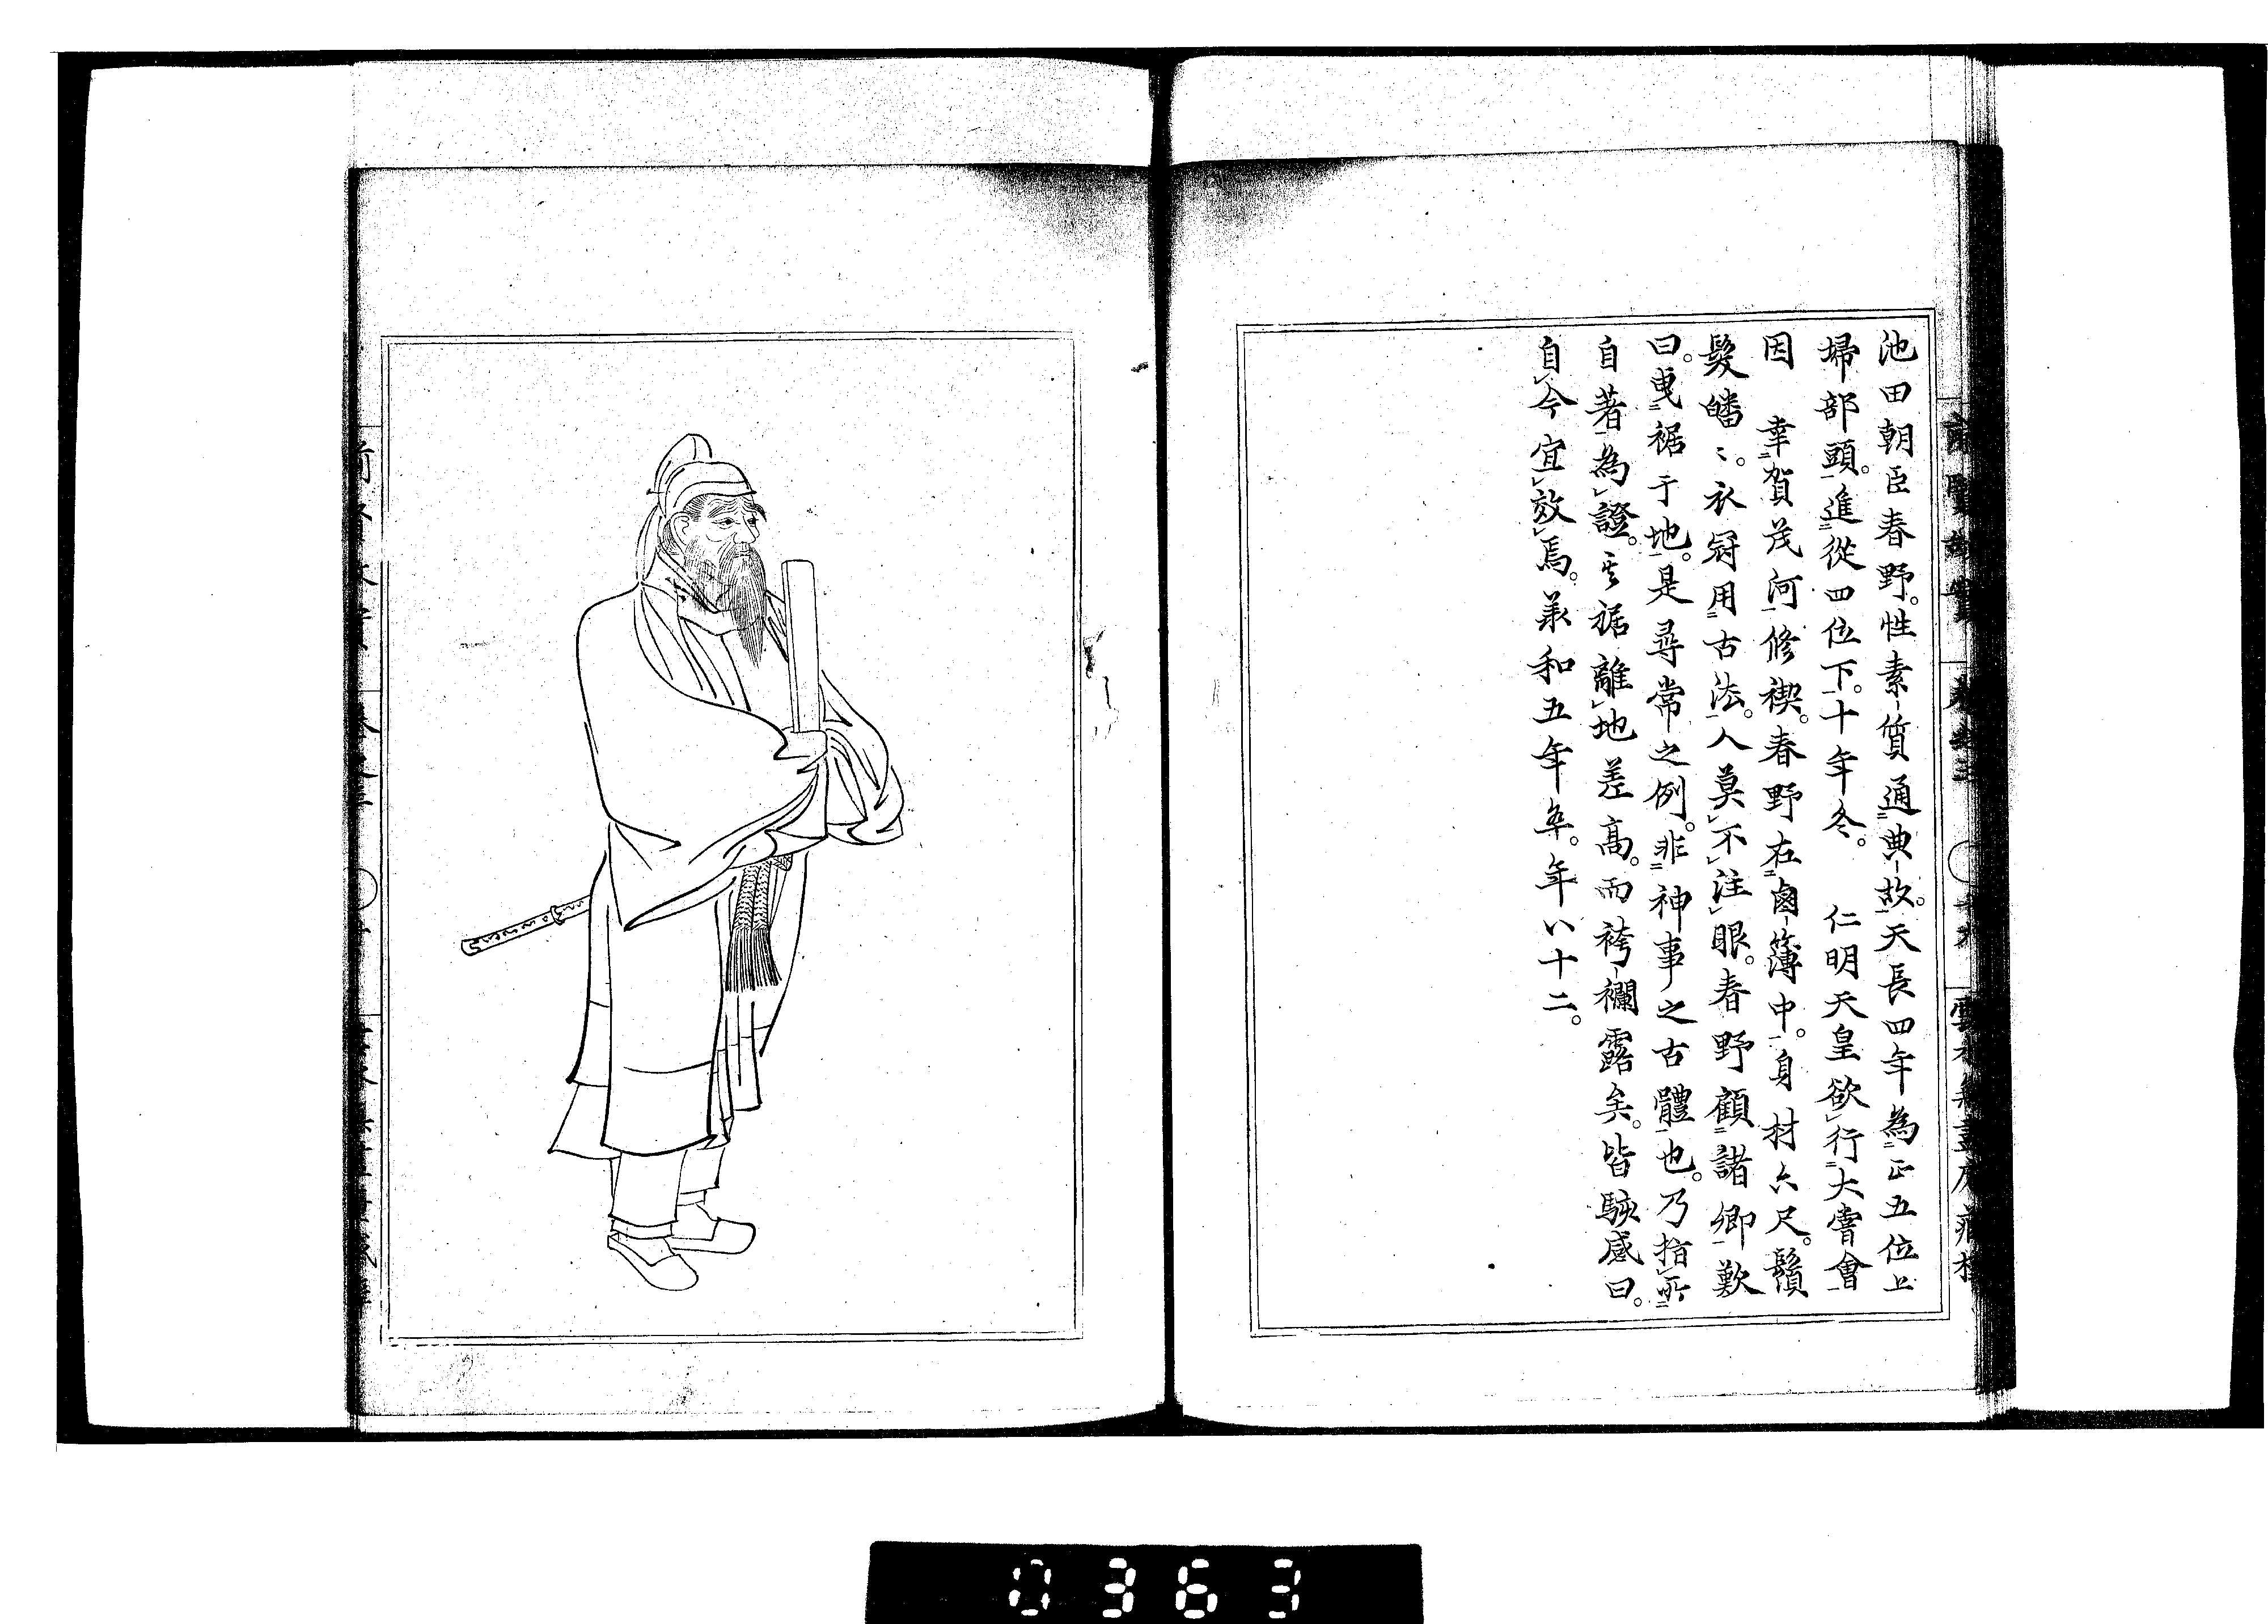 池田朝臣春野。性素質通典故。天長四年為正五位上
掃部頭。進從四位下。十年冬。　仁明天皇欲行大嘗會
因　幸賀茂河修禊。春野在鹵簿中。身材六尺。鬚
髮皤〻。衣冠用古法。人莫不注眼。春野顧諸卿歎
曰。曳裾于地。是尋常之例。非神事之古體也。乃指所
自著為證。其裾離地差高。而袴襴露矣。皆駭感曰。
自今宜效焉。承和五年卒。年八十二。
0363